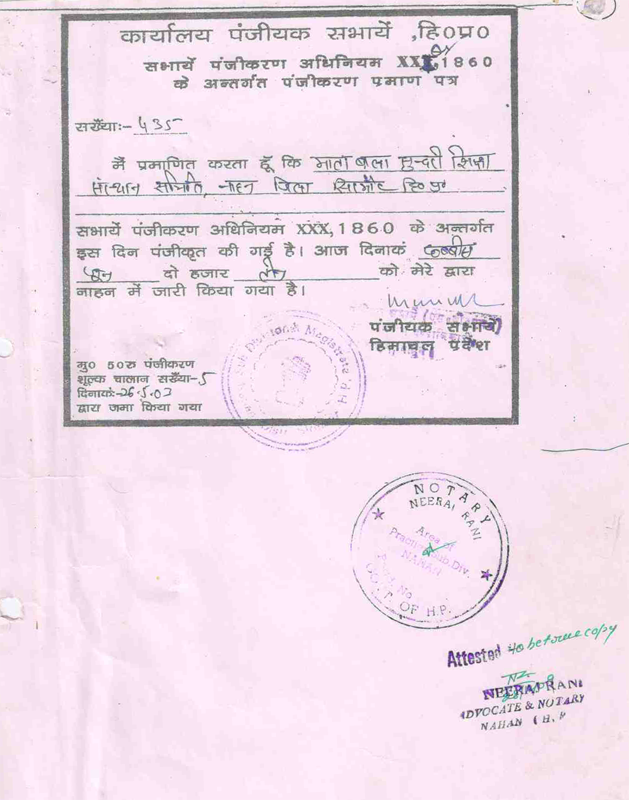 कार्यालय पंजीयक सभायें ,हि०प्र०
सभायें पंजीकरण अधिनियम XXI,1860
के अन्तर्गत पंजीकरण प्रमाण पत्र
सख्यैाः- 435
मैं प्रमाणित करता हूँ कि माता बाला सुन्दरी शिक्षा
संस्थान समिति, नाहन जिला सिरमौर हि०प्र०
सभायें पंजीकरण अधिनियम XXX,1860 के अन्तर्गत
इस दिन पंजीकृत की गई है। आज दिनाकं छब्बीस
जून दो हजार तीन को मेरे द्वारा
नाहन में जारी किया गया है।
पंजीयक सभायें
हिमाचल प्रदेश
मु0 50रु पंजीकरण
शूल्क चालान सख्यैा-5
दिनाकं-26.5.03
द्वारा जमा किया गया
Sub Divisional Magistrate
NOTARY
NEERAJ RANI
Area of
Practice Sub.Div.
NAHAN
No
GOVT OF H.P.
Attested to be true copy
NEERAJ RANI
ADVOCATE & NOTARY
NAHAN (H.P